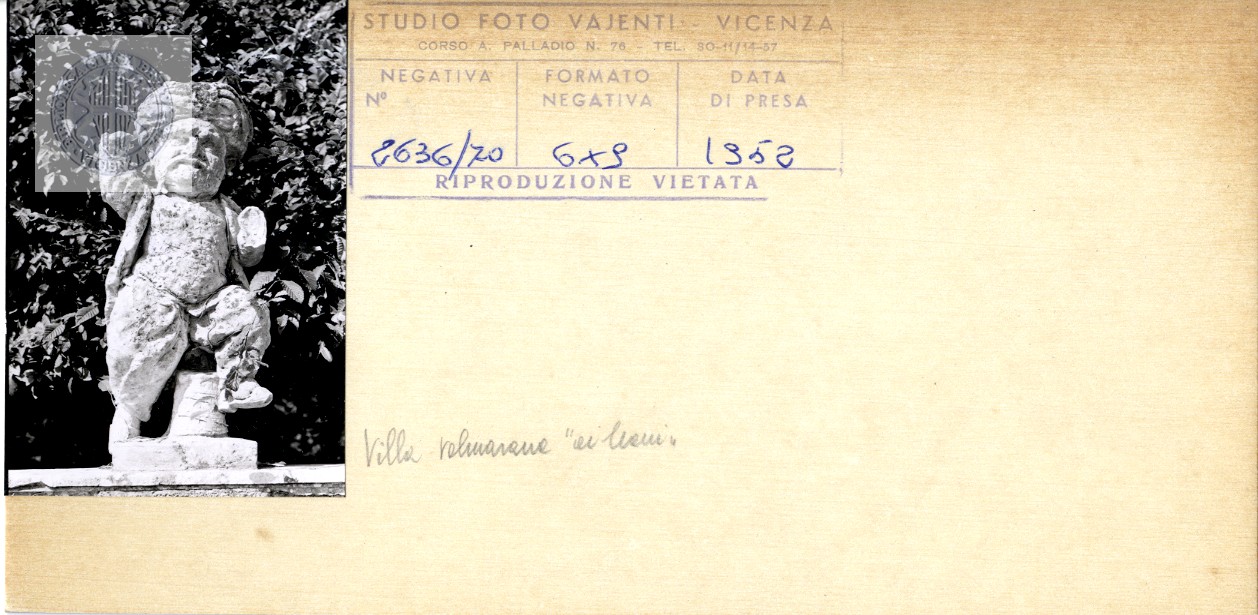 STUDIO FOTO VAJENTI - VICENZA
CORSO A. PALLADIO N. 76 - TEL. 30-11/14-57
NEGATIVA FORMATO DATA
Nº NEGATIVA DI PRESA
2636/70 6x9 1952
RIPRODUZIONE VIETATA
Villa Valmarana "ai Nani"